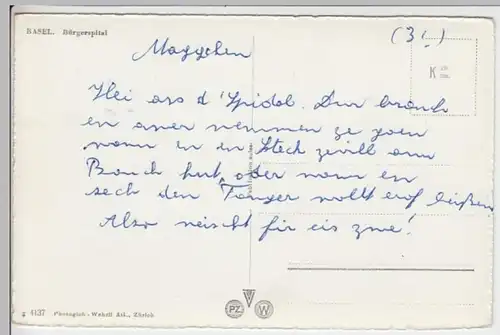 BASEL. Bürgerspital
(31)
Maggchen
Hei ass d'Spidol. Dur brauch
en awer nemmen ze goen
wann en en Steck zevill am
Bauch huet oder wann en
sech den Fanger wollt erof bëissen
Also neischt fir eis zwe!
K
g 4137 Photoglob-Wehrli AG., Zürich
PZ W